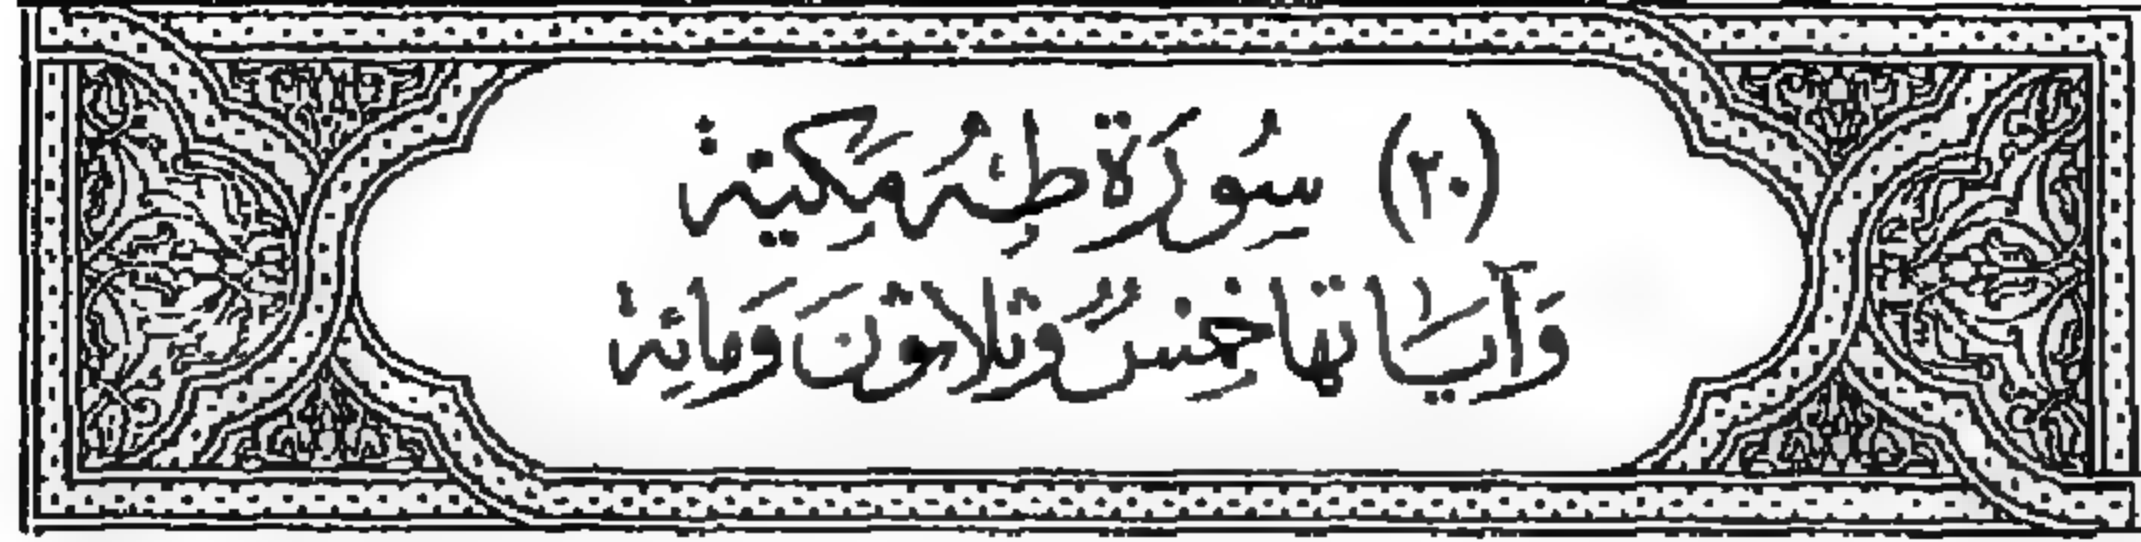 (٢٠) سُورَة طٰهٰ مَكِّيَّة
وَآيَاتُهَا خَمْسٌ وَثَلَاثُونَ وَمِائَة